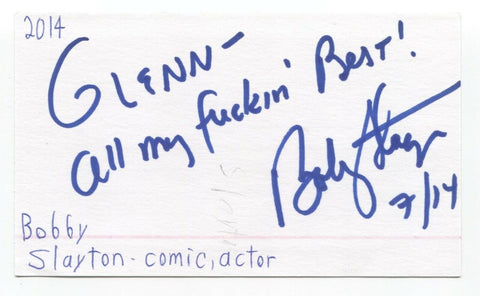 2014
GLENN-
all my fuckin' BEST!
Bobby Slayton
7/14
Bobby
Slayton - comic, actor